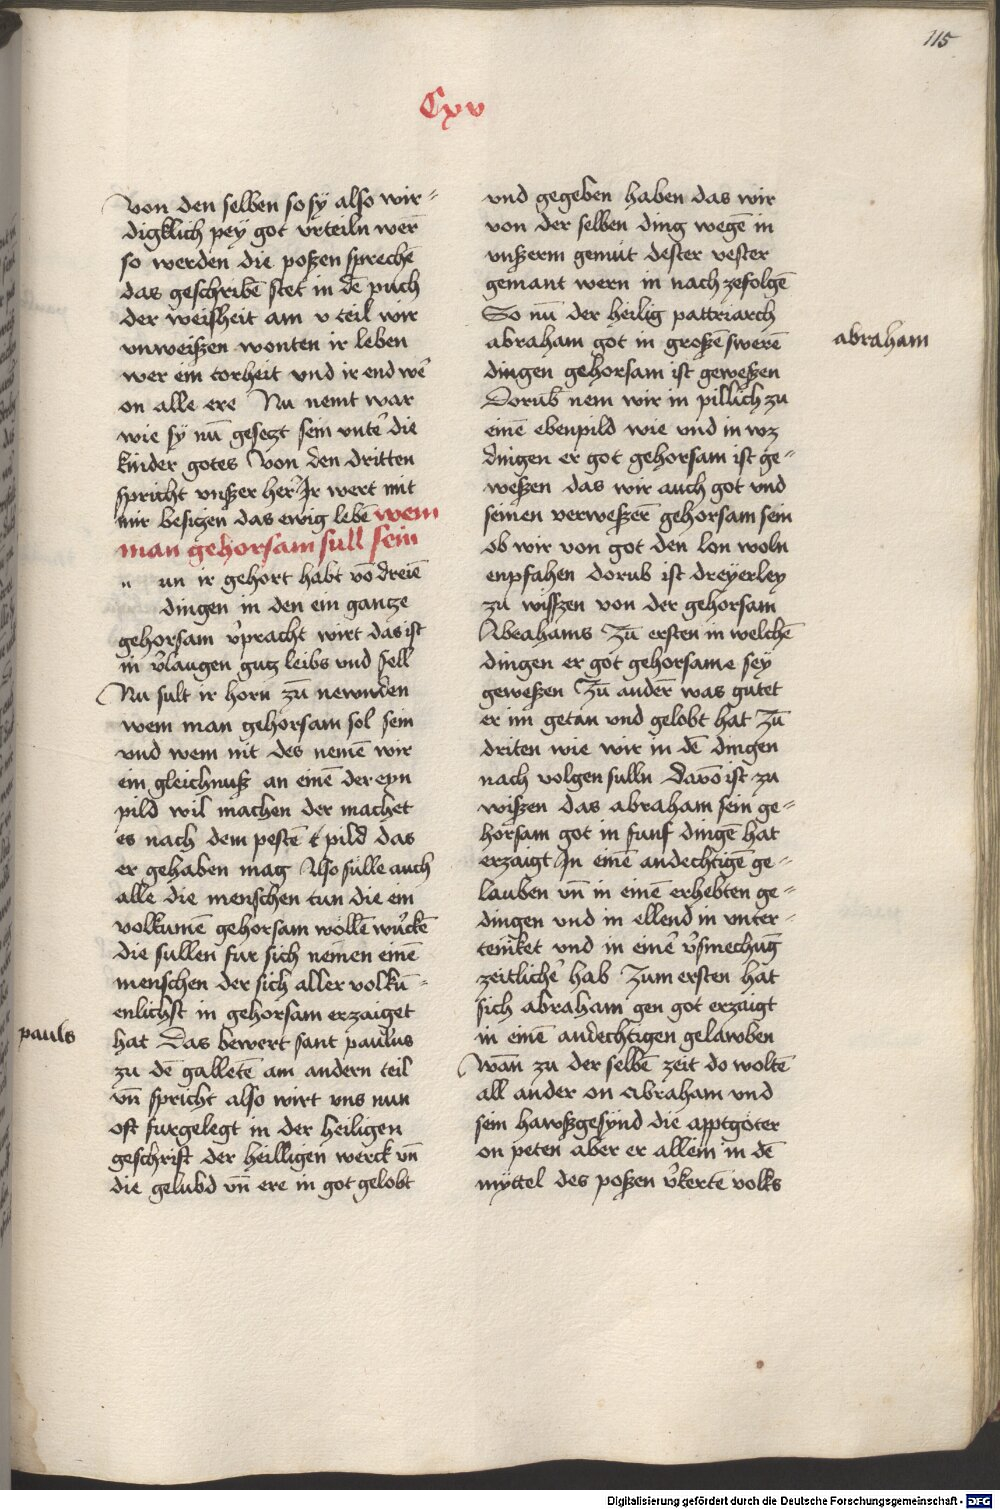 115
Cxv
Von den selben so sy also wir=
digklich pey got vrteiln wer̄
so werden die poßen sprechē
das geschribē stet in dē puch
der weisheit am v teil wir
vnweißen wonten ir leben
wer ein torheit vnd ir end we᷑
on alle ere Nu nemt war
wie sy nū gesetzt sein vnte᷑ die
kinder gotes Von den dritten
spricht vnßer her᷑ Ir wert mit
mir besitzen das ewig lebē wem
man gehorsam sull sein
n un ir gehort habt vō dreiē
dingen in den ein gantze
gehorsam v᷑pracht wirt das ist
in v᷑laugen gutz leibs vnd sell
Nu sult ir horn zū newnden
wem man gehorsam sol sein
vnd wem nit des nemē wir
ein gleichnuß an einē der eyn
pild wil machen der machet
es nach dem pestē pild das
er gehaben mag Also sulle auch
alle die menschen tun die ein
volkumē gehorsam wollē wu᷑ckē
die sullen fur sich nemen einē
menschen der sich aller volkū=
enlichst in gehorsam erzaiget
pauls
hat Das bewert sant paulus
zu dē galletē am andern teil
vn̄ spricht also wirt vns nun
oft furgelegt in der heiligen
geschrift der heilligen werck vn̄
die gelubd vn̄ ere in got gelobt
vnd gegeben haben das wir
von der selben ding wegē in
vnßerm gemut dester vester
gemant wern in nach zefolgē
So nū der heilig pattriarch
abraham got in großē swerē
abraham
dingen gehorsam ist geweßen
Dorub̄ nem wir in pillich zu
einē ebenpild wie vnd in wz
dingen er got gehorsam ist ge=
weßen das wir auch got vnd
seinen verweßer̄ gehorsam sein
ob wir von got den lon woln
enpfahen dorub̄ ist dreyerley
zu wissen von der gehorsam
Abeahams Zū ersten in welchē
dingen er got gehorsame sey
geweßen Zū ander̄ was gutet
er im getan vnd gelobt hat Zū
driten wie wir in dē dingen
nach volgen sulln Davō ist zu
wißen das abraham sein ge=
horsam got in funf dingē hat
erzaigt In einē andechtigē ge=
lauben vn̄ in einē erhebten ge=
dingen vnd in ellend in vnter=
teniket vnd in eine᷑ v᷑smechūg
zeitliche᷑ hab Zum ersten hat
sich abraham gen got erzaigt
in einē andechtigen gelawben
Wan̄ zu der selbē zeit do woltē
all ander on abraham vnd
sein hawßgesynd die apptgoter
on peten aber er allein in dē
myttel des poßen v᷑kertē volks
Digitalisierung gefördert durch die Deutsche Forschungsgemeinschaft - DFG